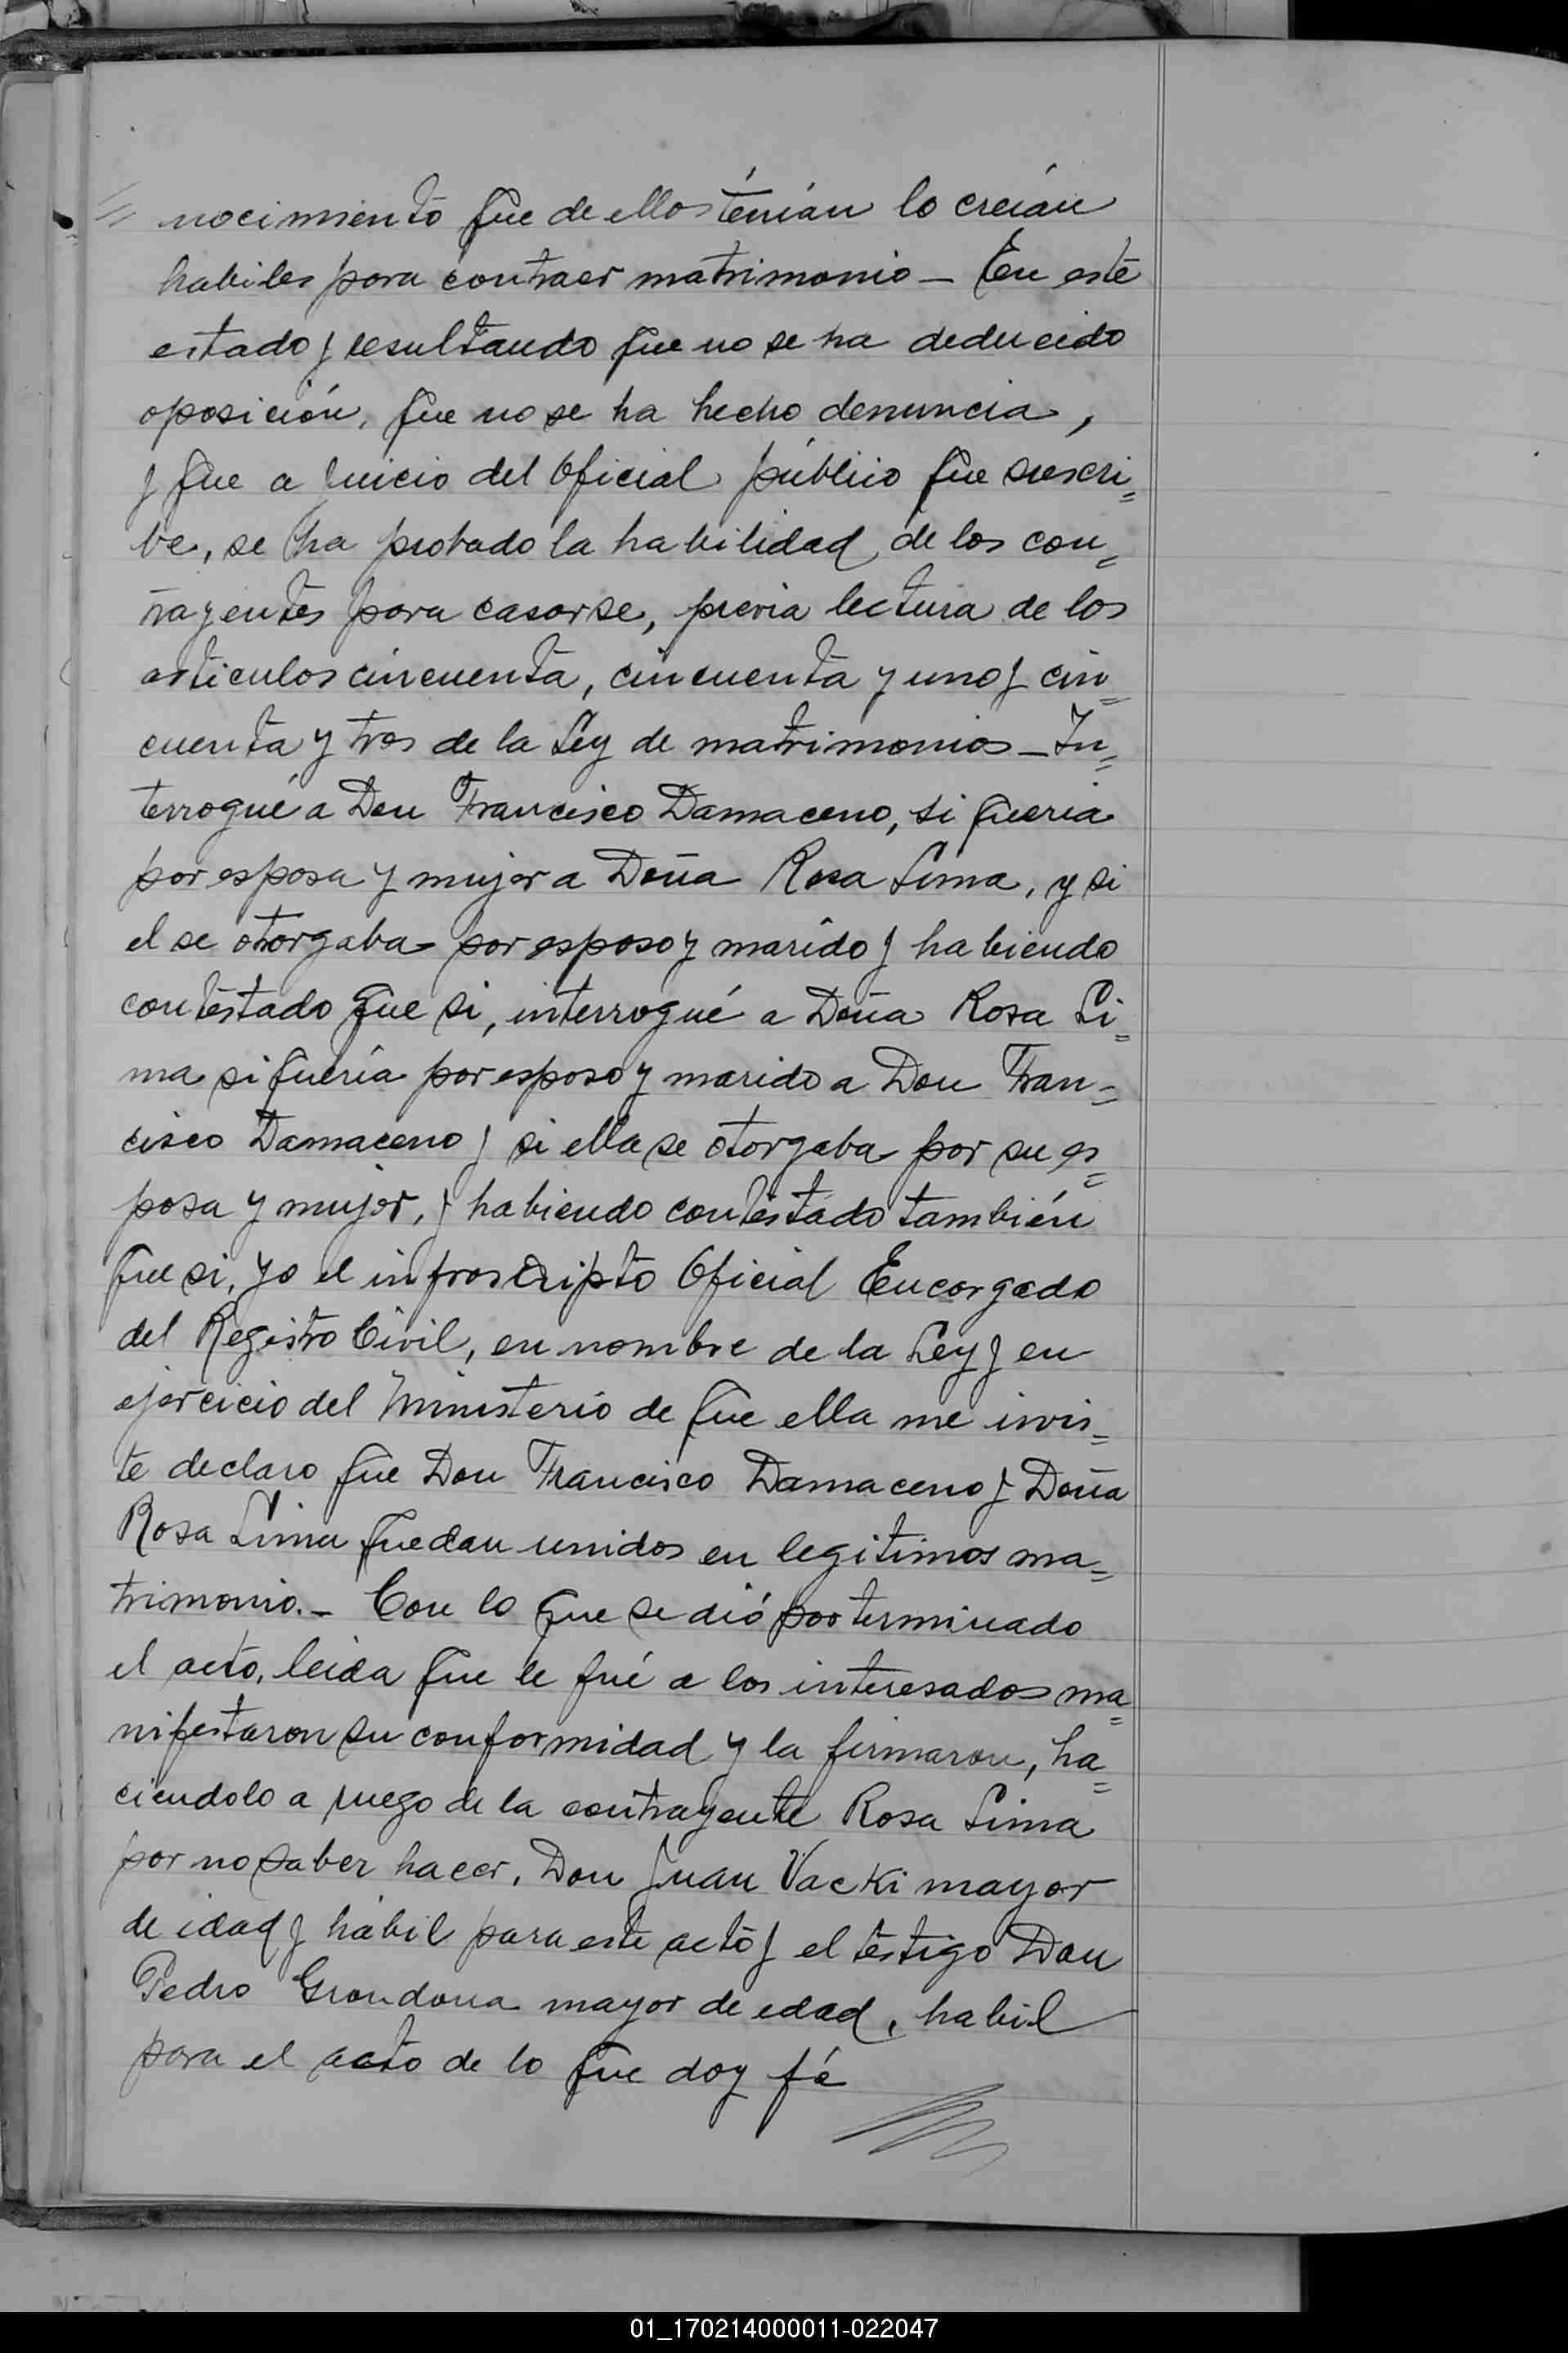 nocimiento que de ellos tenían lo creían
habiles para contraer matrimonio – En este
estado y resultando que no se ha deducido
oposición, que no se ha hecho denuncia,
y que a juicio del Oficial público que suscri=
be, se ha probado la habilidad de los con=
trayentes para casarse, previa lectura de los
articulos cincuenta, cincuenta y uno y cin=
cuenta y tres de la Ley de matrimonios – In=
terrogué a Don Francisco Damaceno, si queria
por esposa y mujer a Doña Rosa Lima, y si
el se otorgaba por esposo y marido y habiendo
contestado que si, interrogué a Doña Rosa Li=
ma si quería por esposo y marido a Don Fran=
cisco Damaceno y si ella se otorgaba por su es=
posa y mujer, y habiendo contestado también
que si, yo el infrascripto Oficial Encargado
del Registro Civil, en nombre de la Ley y en
ejercicio del Ministerio de que ella me invis=
te declaro que Don Francisco Damaceno y Doña
Rosa Lima quedan unidos en legitimos ma=
trimonio.– Con lo que se dió por terminado
el acto, leida que le fué a los interesados ma=
nifestaron su conformidad y la firmaron, ha=
ciendolo a ruego de la contrayente Rosa Lima
por no saber hacer, Don Juan Vacki mayor
de edad y hábil para este acto y el testigo Don
Pedro Grondona mayor de edad, habil
para el acto de lo que doy fé
01_170214000011-022047